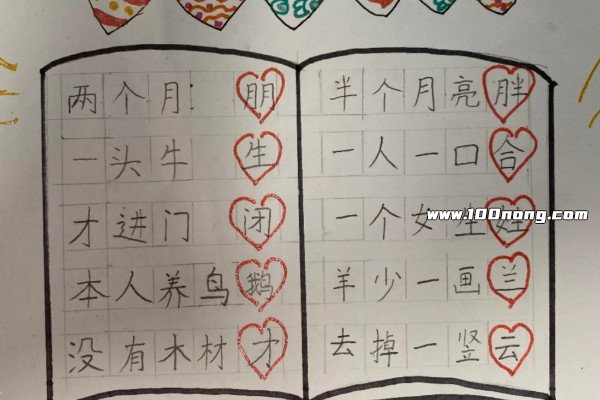 两个月 朋
一头牛 生
才进门 闭
本人养鸟 鹅
没有木材 才
半个月亮 胖
一人一口 合
一个女生 姓
羊少一画 兰
去掉一竖 云
www.100nong.com